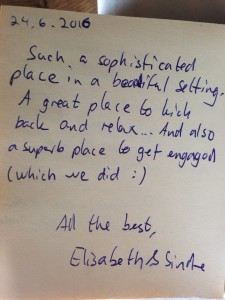 24.6.2016
Such a sophisticated
place in a beautiful setting.
A great place to kick
back and relax... And also
a superb place to get engaged
(which we did :)
All the best,
Elisabeth &